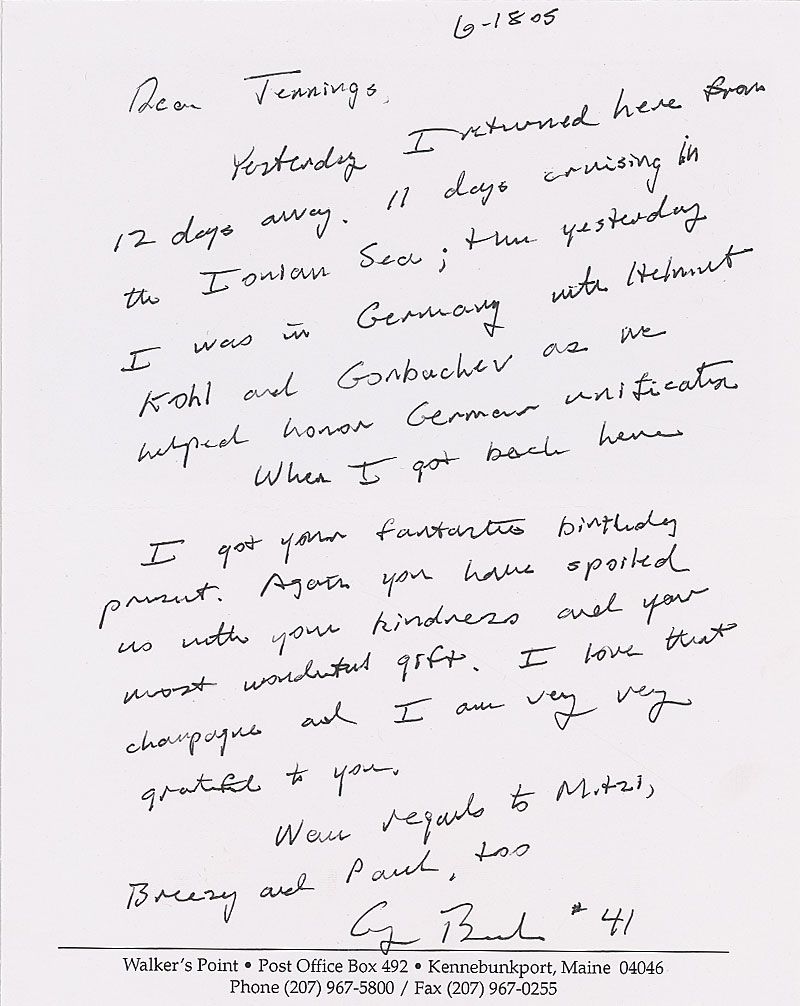 6-18 05
Dear Jennings,
Yesterday I returned here from
12 days away. 11 days cruising in
the Ionian Sea; then yesterday
I was in Germany with Helmut
Kohl and Gorbachev as we
helped honor German unification
When I got back here
I got your fantastic birthday
present. Again you have spoiled
us with your kindness and your
most wonderful gift. I love that
champagne and I am very very
grateful to you.
Warm regards to Mitzi,
Breezy and Paul, too
Gg Bush # 41
Walker's Point • Post Office Box 492 • Kennebunkport, Maine 04046
Phone (207) 967-5800 / Fax (207) 967-0255